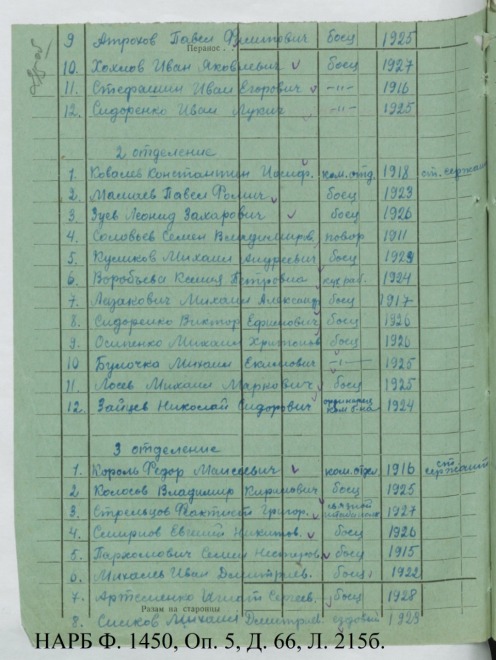 9 Атрохов Павел Филиппович боец 1925
Перанос
10. Хохлов Иван Яковлевич боец 1927
11. Стефашин Иван Егорович -"- 1916
12. Сидоренко Иван Лукич -"- 1925
2 отделение
1. Ковалев Константин Иосиф. ком. отд. 1918 ст. сержант
2. Павел Фомич боец 1923
3. Зуев Леонид Захарович боец 1926
4. Соловьев Семен Владимиров. повар 1911
5. Куликов Михаил Андреевич боец 1923
6. Воробьева Ксения Петровна кух раб. 1924
7. Лазакович Михаил Александ боец 1917
8. Сидоренко Виктор Ефимович боец 1926
9. Осипенко Михаил Христопов боец 1926
10 Булочка Михаил Екимович -"- 1925
11. Лосев Михаил Маркович боец 1925
12. Зайцев Николай Сидорович ординарец ком б-на 1924
3 отделение
1. Король Федор Моисеевич ком. отдел. 1916 ст. сержант
2 Колосов Владимир Кириллович боец 1925
3. Стрельцов Феоктист Григор. связной 1927
4. Смирнов Евгений Никитов. боец 1926
5. Пархомович Семен Нестеров. боец 1915
6. Михалев Иван Дмитриев. боец 1922
7. Артеменко Игнат Сергеев. боец 1928
Разам на старонцы
8. Михаил Дмитриев. ездовой 1923
НАРБ Ф. 1450, Оп. 5, Д. 66, Л. 215б.